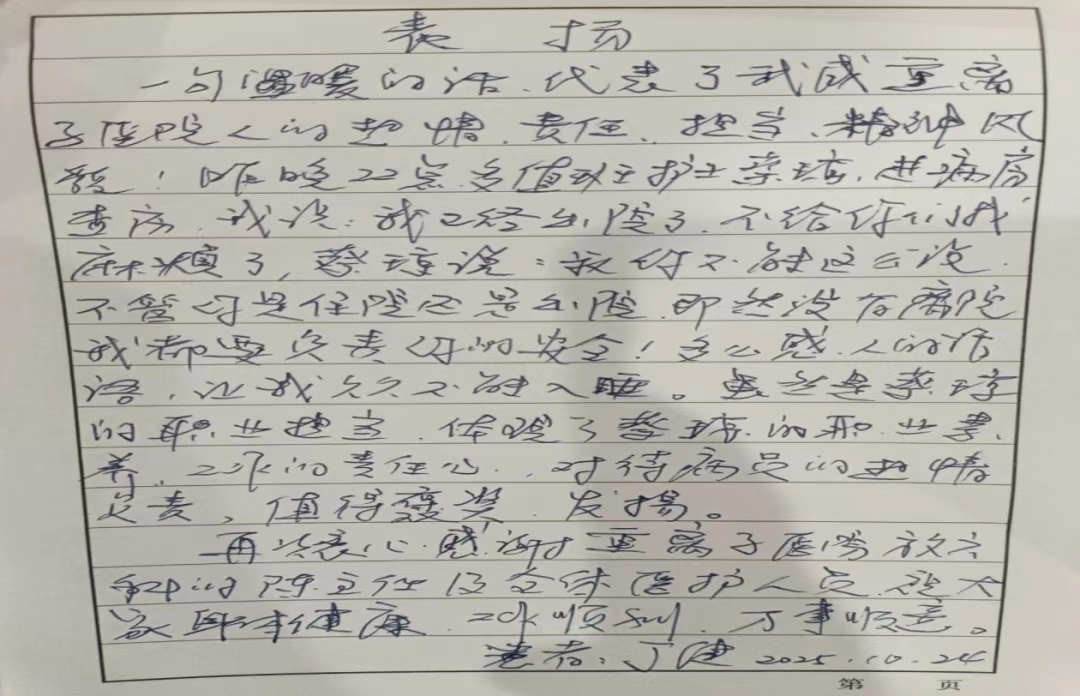 表 扬
一句温暖的话、代表了武威重离
子医院人的热情、责任、担当、精神风
貌！昨晚22点多值班护士蔡琼，进病房
查房，我说：我已经出院了，不给你们找
麻烦了，蔡琼说：叔你不能这么说，
不管你是住院还是出院，即然没有离院
我都要负责你的安全！多么感人的话
语，让我久久不能入睡。虽然是蔡琼
的职业担当，体现了蔡琼的职业素
养、工作的责任心，对待病员的热情
负责，值得褒奖、发扬。
再次衷心感谢重离子医院放六
科的陈主任及全体医护人员，祝大
家身体健康，工作顺利，万事顺意。
患者：丁健 2025.10.24
第 页